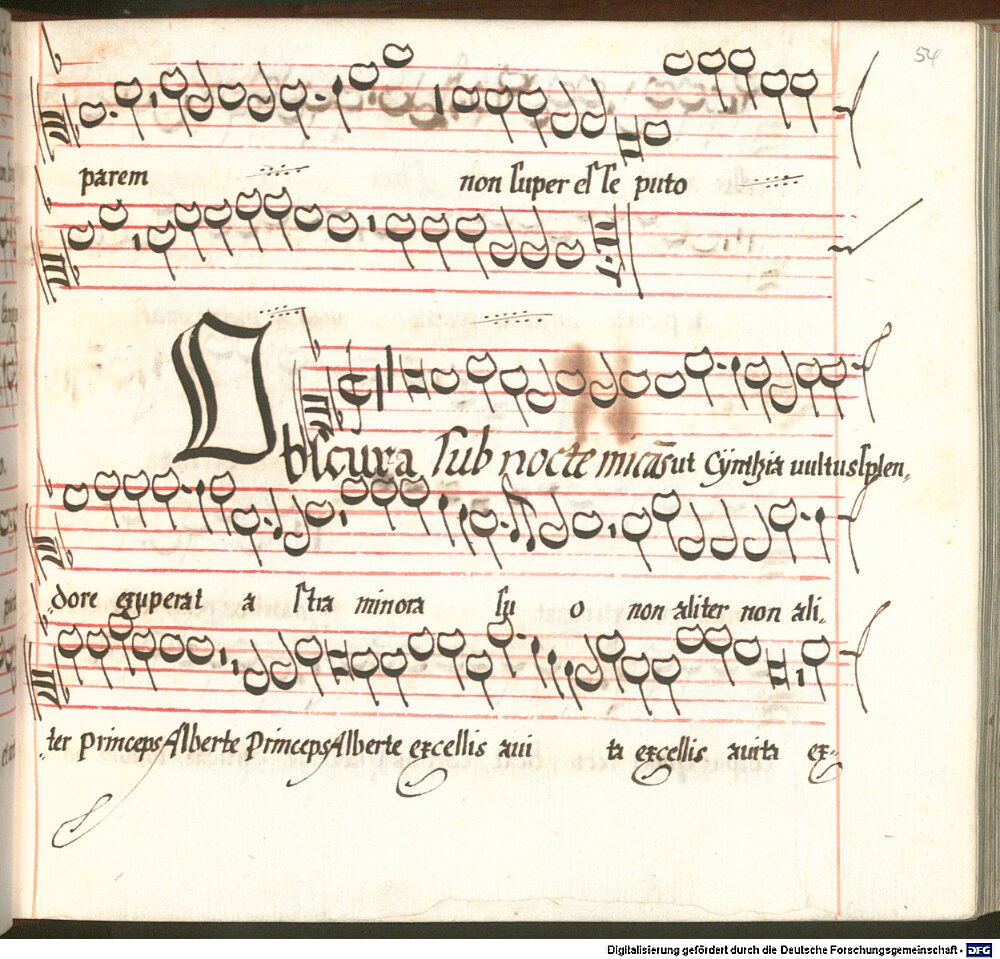 54
parem non super esse puto
Obscura sub nocte micās ut Cÿnthia uultus splen„
„dore exuperat astra minora suo non aliter non ali„
„ter Princeps Alberte Princeps Alberte excellis auita excellis auita ex„
Digitalisierung gefördert durch die Deutsche Forschungsgemeinschaft - DFG